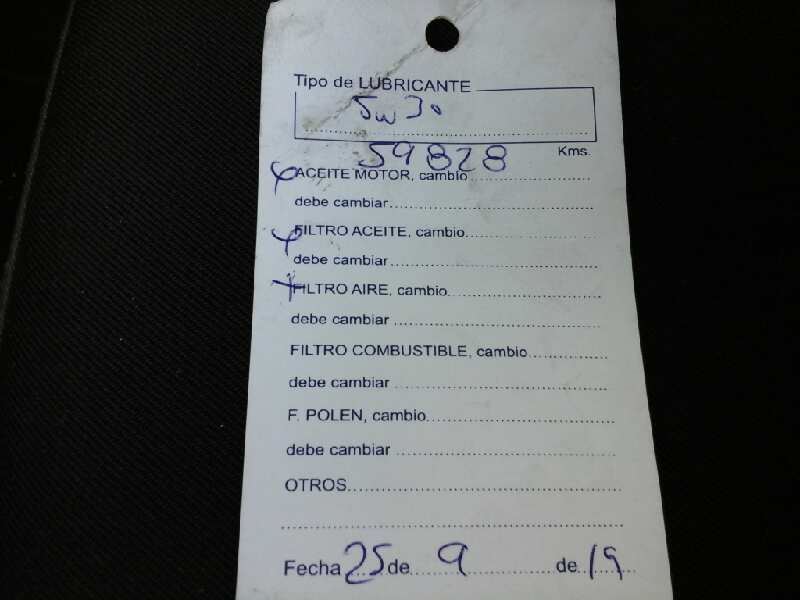 Tipo de LUBRICANTE
5w30
59828 Kms.
ACEITE MOTOR, cambio
debe cambiar
FILTRO ACEITE, cambio
debe cambiar
FILTRO AIRE, cambio
debe cambiar
FILTRO COMBUSTIBLE, cambio
debe cambiar
F. POLEN, cambio
debe cambiar
OTROS
Fecha 25 de 9 de 19